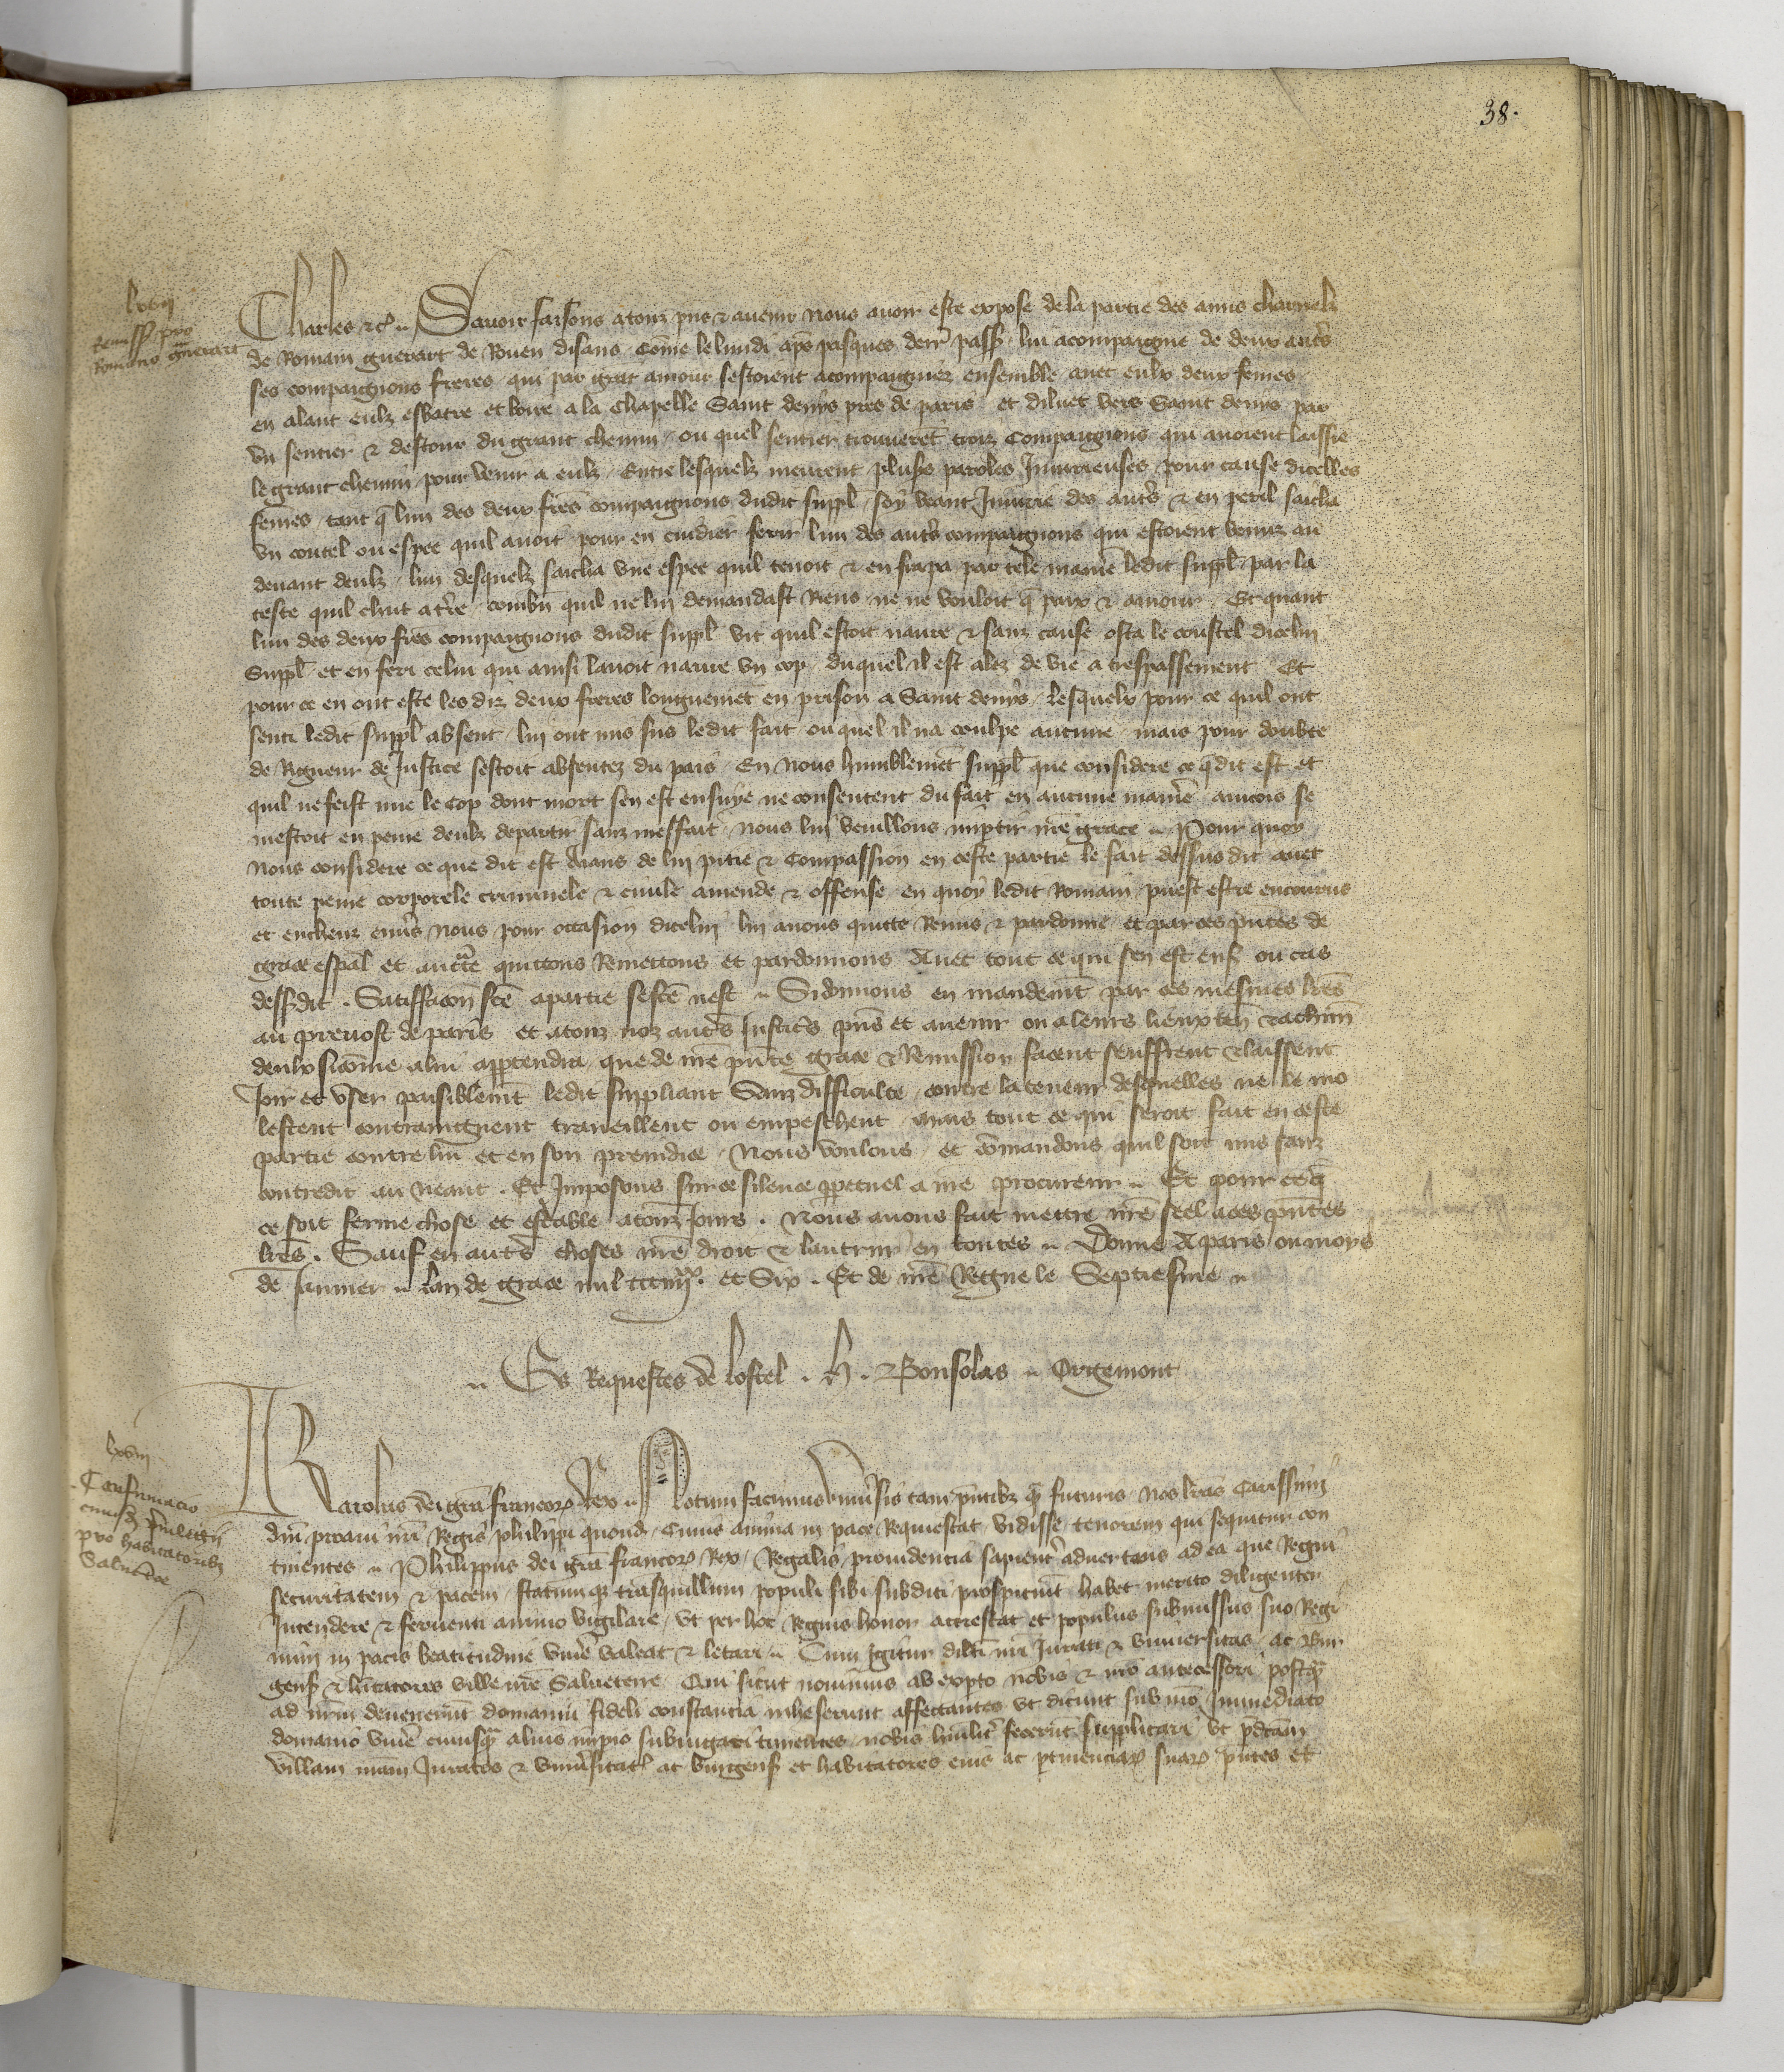 38.
lxvii
Remiss pro
Romano guerart
Charles etc. Savoir faisons a touz pns et avenir nous avoir este expose de la partie des amis charnelz
de Romain guerart de Rouen disans Come le lundi aps pasques derr pass lui acompaigne de deux autrs
ses compaignons freres qui par grat amour sestoient acompaigniez ensemble avec eulx deux femes
en alant eulz esbatre et boire a la Chapelle Saint denys pres de paris et diluec vers Saint denys par
un sentier et destour du grant chemin ou quel sentier trouveret troiz compaignons qui avoient laissie
le grant chemin pour venir a eulz Entre lesquelz meurent plusrs paroles Iniurieuses pour cause dicelles
femes tant q lun des deux fres compaignons dudit suppl soy veant Iniurie des autrs et en peril saicha
un coutel ou espee quil avoit pour en cuidier ferir lun des autrs compaignons qui estoient venuz au
devant deulz lun desquelz saicha une espee quil tenoit et en frapa par tele maniere ledit suppl par la
teste quil chut a tre combn quil ne lui demandast Riens ne ne vouloit q paix et amour Et quant
lun des deux fres compaignons dudit suppl vit quil estoit navre et sanz cause osta le coustel dicelui
Suppl et en feri celui qui ainsi lavoit navre un cop duquel il est alez de vie a trespassement Et
pour ce en ont este les diz deux freres longuemet en prison a Saint denys lesquelx pour ce quil ont
senti ledit suppl absent lui ont mis sus ledit fait ou quel il na coulpe aucune mais pour doubte
de Rigueur de Justice sestoit absentez du pais En nous humblemet suppl que considere ce q dit est et
quil ne feist mie le cop dont mort sen est ensuye ne consentent du fait en aucune maniere aincois se
mestoit en peine deulz departir sanz meffait nous lui veuillons impartir nre grace Pour quoy
Nous considere ce que dit est Aians de lui pitie et Compassion en ceste partie le fait dessus dit avec
toute peine corporele criminele et civile amende et offense en quoy ledit Romain puest estre encouruz
et encheuz envrs nous pour occasion dicelui lui avons quitte Remis et pardonne et par ces pntes de
grace espal et auctte quittons Remettons et pardonnons Avec tout ce qui sen est ens ou cas
dessdit. Satiffacon fce a partie se fce nest Si donnons en mandemt par ces mesmes lres
au prevost de paris et a touz noz autrs Justicrs pns et avenir ou a leurs lieuxten et a chun
deulx si come a lui apptendra que de nre pnte grace et Remission facent seuffrent et laissent
Joir et user paisiblemt ledit suppliant Sanz difficulte contre la teneur desquelles ne le mo
lestent contraingnent traveillent ou empeschent mais tout ce qui seroit fait en ceste
partie contre lui et en son preiudice Nous voulons et comandons quil soit mis sanz
contredit au neant. Et Imposons sur ce silence ppetuel a nre procureur Et pour ce q
ce soit ferme chose et estable a touz Jours. Nous avons fait mettre nre seel a ces pntes
lres. Sauf en autrs choses nre droit et lautruy en toutes Donne A paris ou moys
de Janvier lan de grace mil ccciiiixx. et Six. Et de nre Regne le Septiesme
Es Requestes de lostel. h. Bonsolas Orgemont
lxviii
Confirmacio
cuiusd privilegii
pro habitatoribz
Salveterre
Karolus dei gra francorum Rex Notum facimus univrsis tam pntibz q futuris nos lras Carissimi
dni proavi nri Regis philippi quond Cuius anima in pace Requiescat vidisse tenorem qui sequitur con
tinentes Philippus dei gra francorum Rex Regalis providencia sapientr advertens ad ea que Regni
securitatem et pacem statumqz trasquillum populi sibi subditi prospiciut habet merito diligenter
Intendere et ferventi animo vigilare ut per hoc Regius honor accrescat et populus submissus suo Regi
mini in pacis beatitudine vivere valeat et letari Cum Igitur dilti nri Iurati et universitas ac Bur
gens et hitatores ville nre Salveterre Qui sicut novimus ab expto nobis et nro antecessori postq
ad nrm devenerunt domaniu fideli constancia inheserunt affectantes ut dicunt sub nro Immediato
domanio vivere cuiusq alius impio subiugari timentes nobis humilitr fecerut supplicari ut pdcam
villam nram Iuratos et univrsitat ac burgens et habitatores eius ac ptinenciarum suarum pntes et